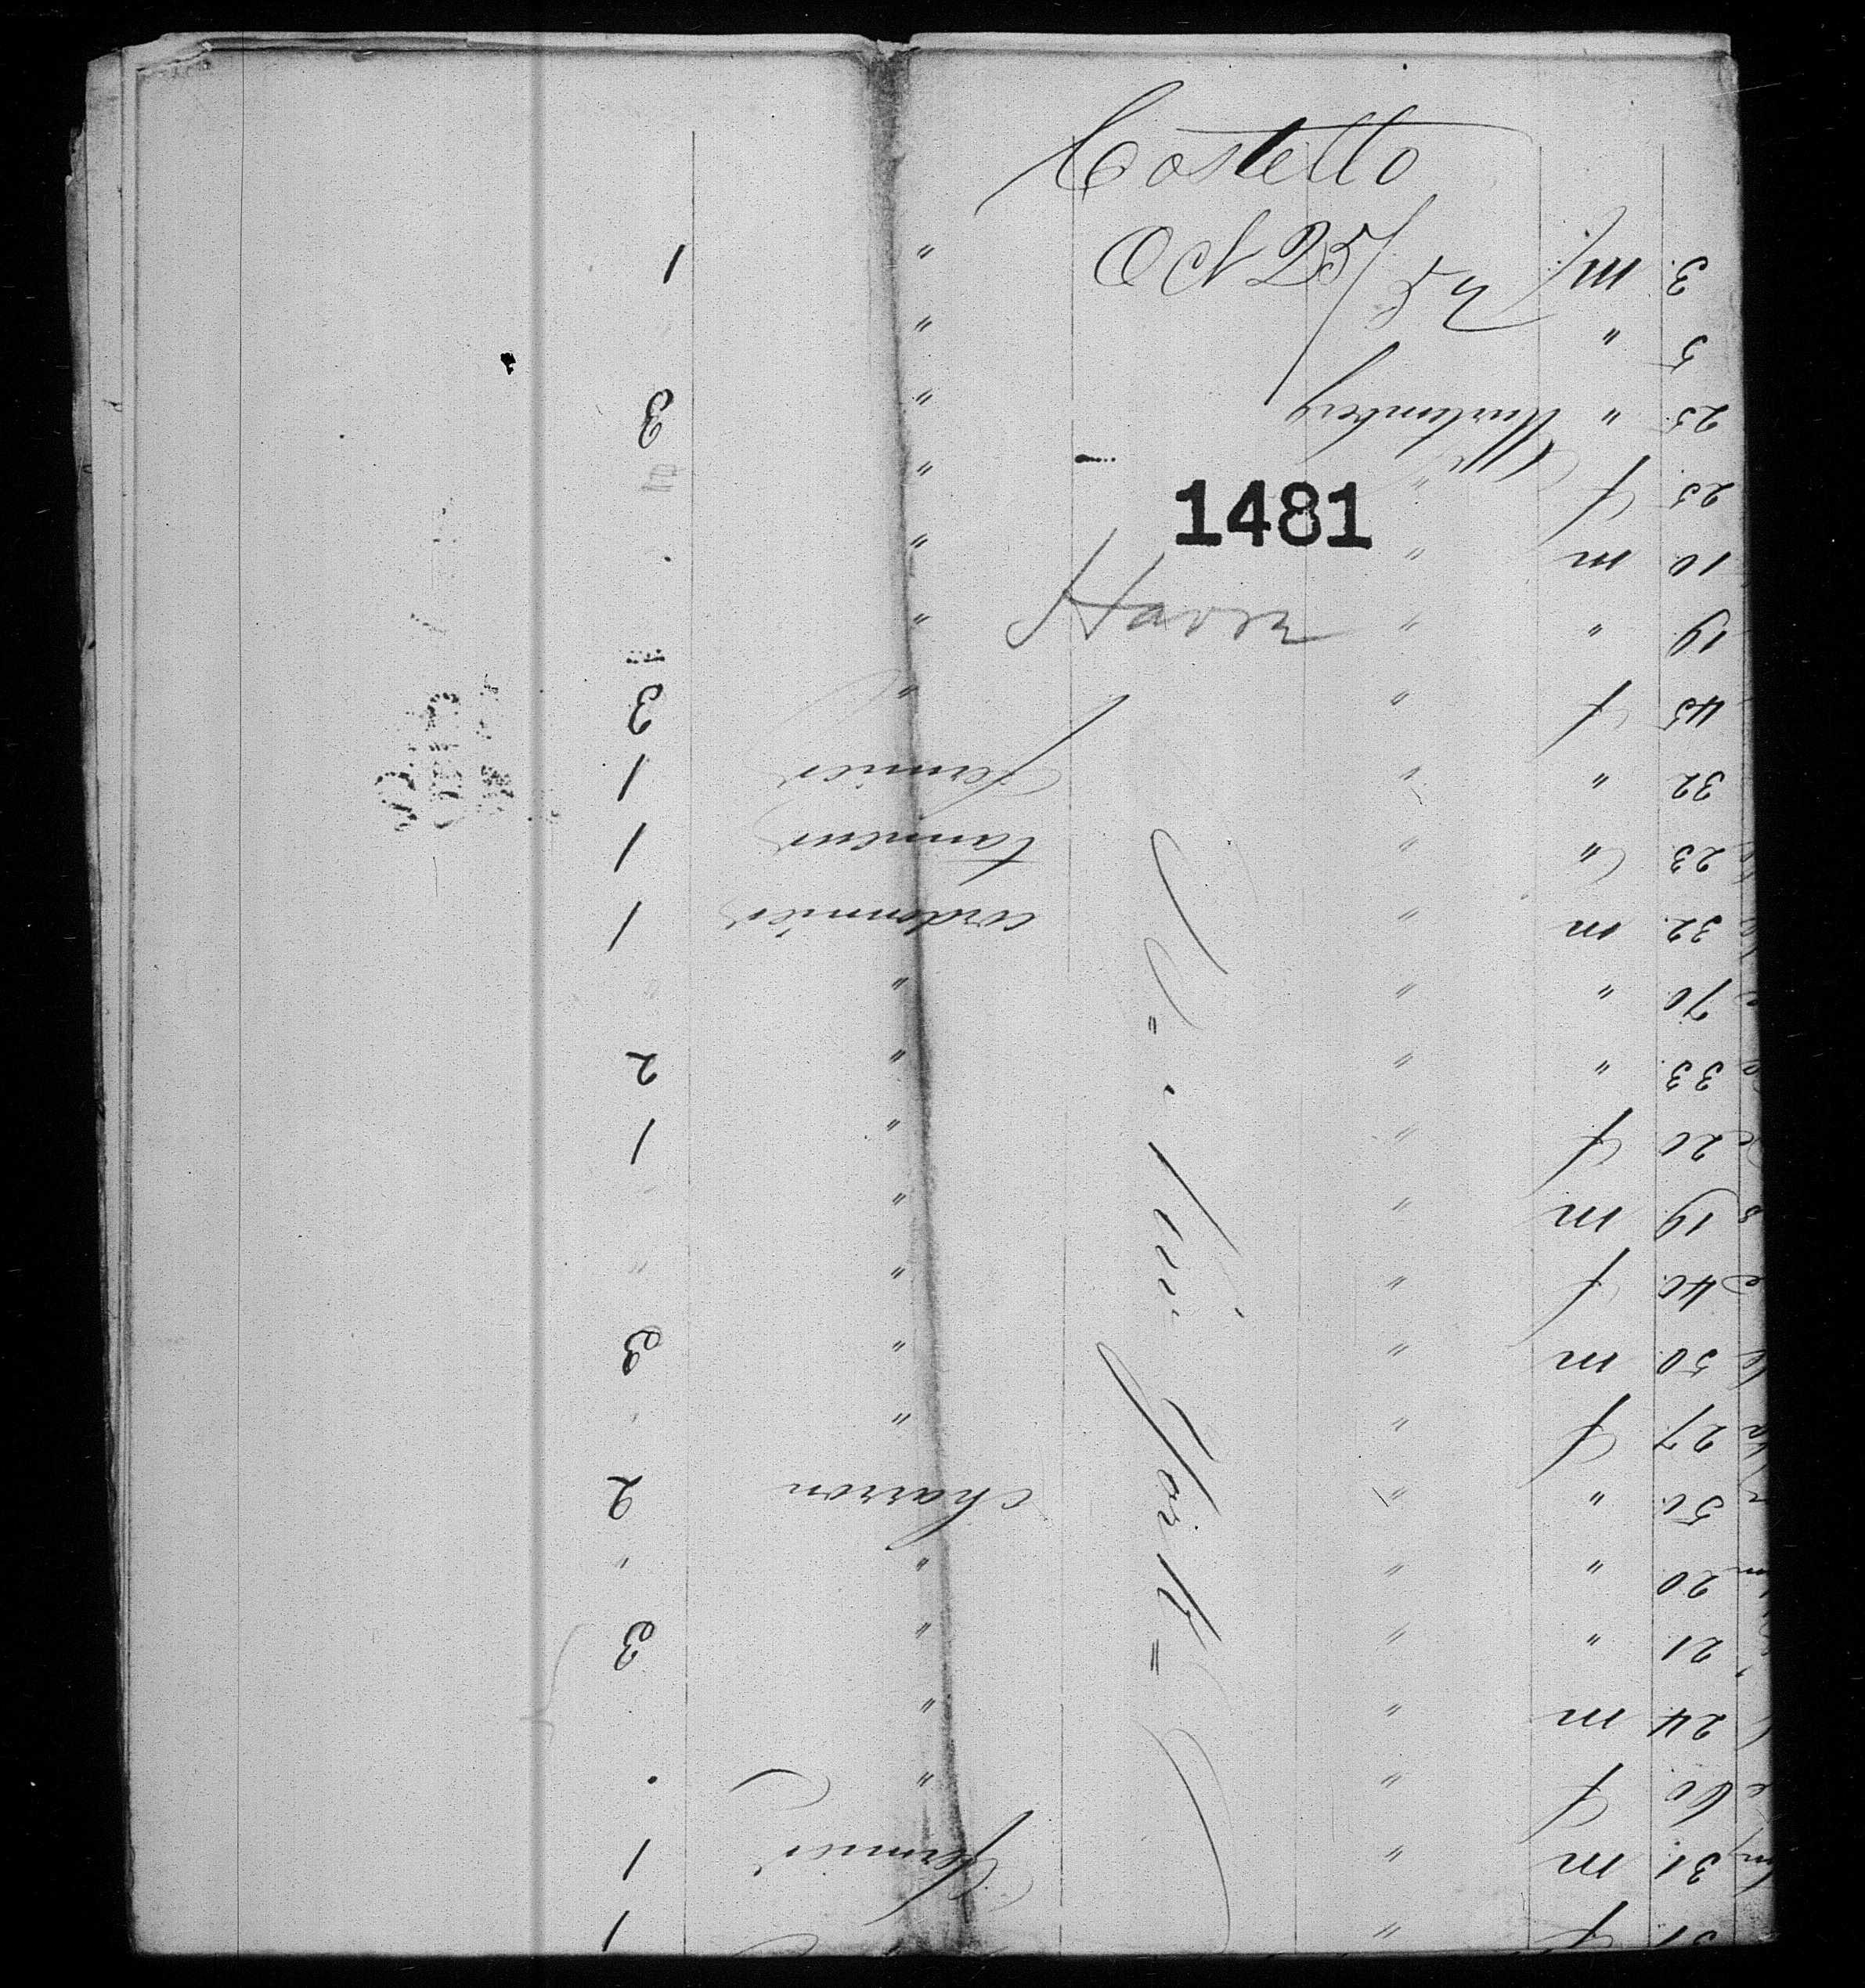 Costello
Oct 25/52
1481
Havre
31 f " 1
31. m " fermier 1
60. f " "
24. m " "
21 " " " 3
20 " " "
50. " " charron 2
27 f " "
50. m " " 3
40. f " "
19. m " "
20 f " " 1
33. " " " 2
70. " " "
32. m " cordonnier 1
23. " " tanneur 1
32 " " fermier 1
45 f " " 3
19. " " "
10 m " "
25. f " "
25. " Wurtemberg " 3
5 " "
3. m. " 1
= New York =